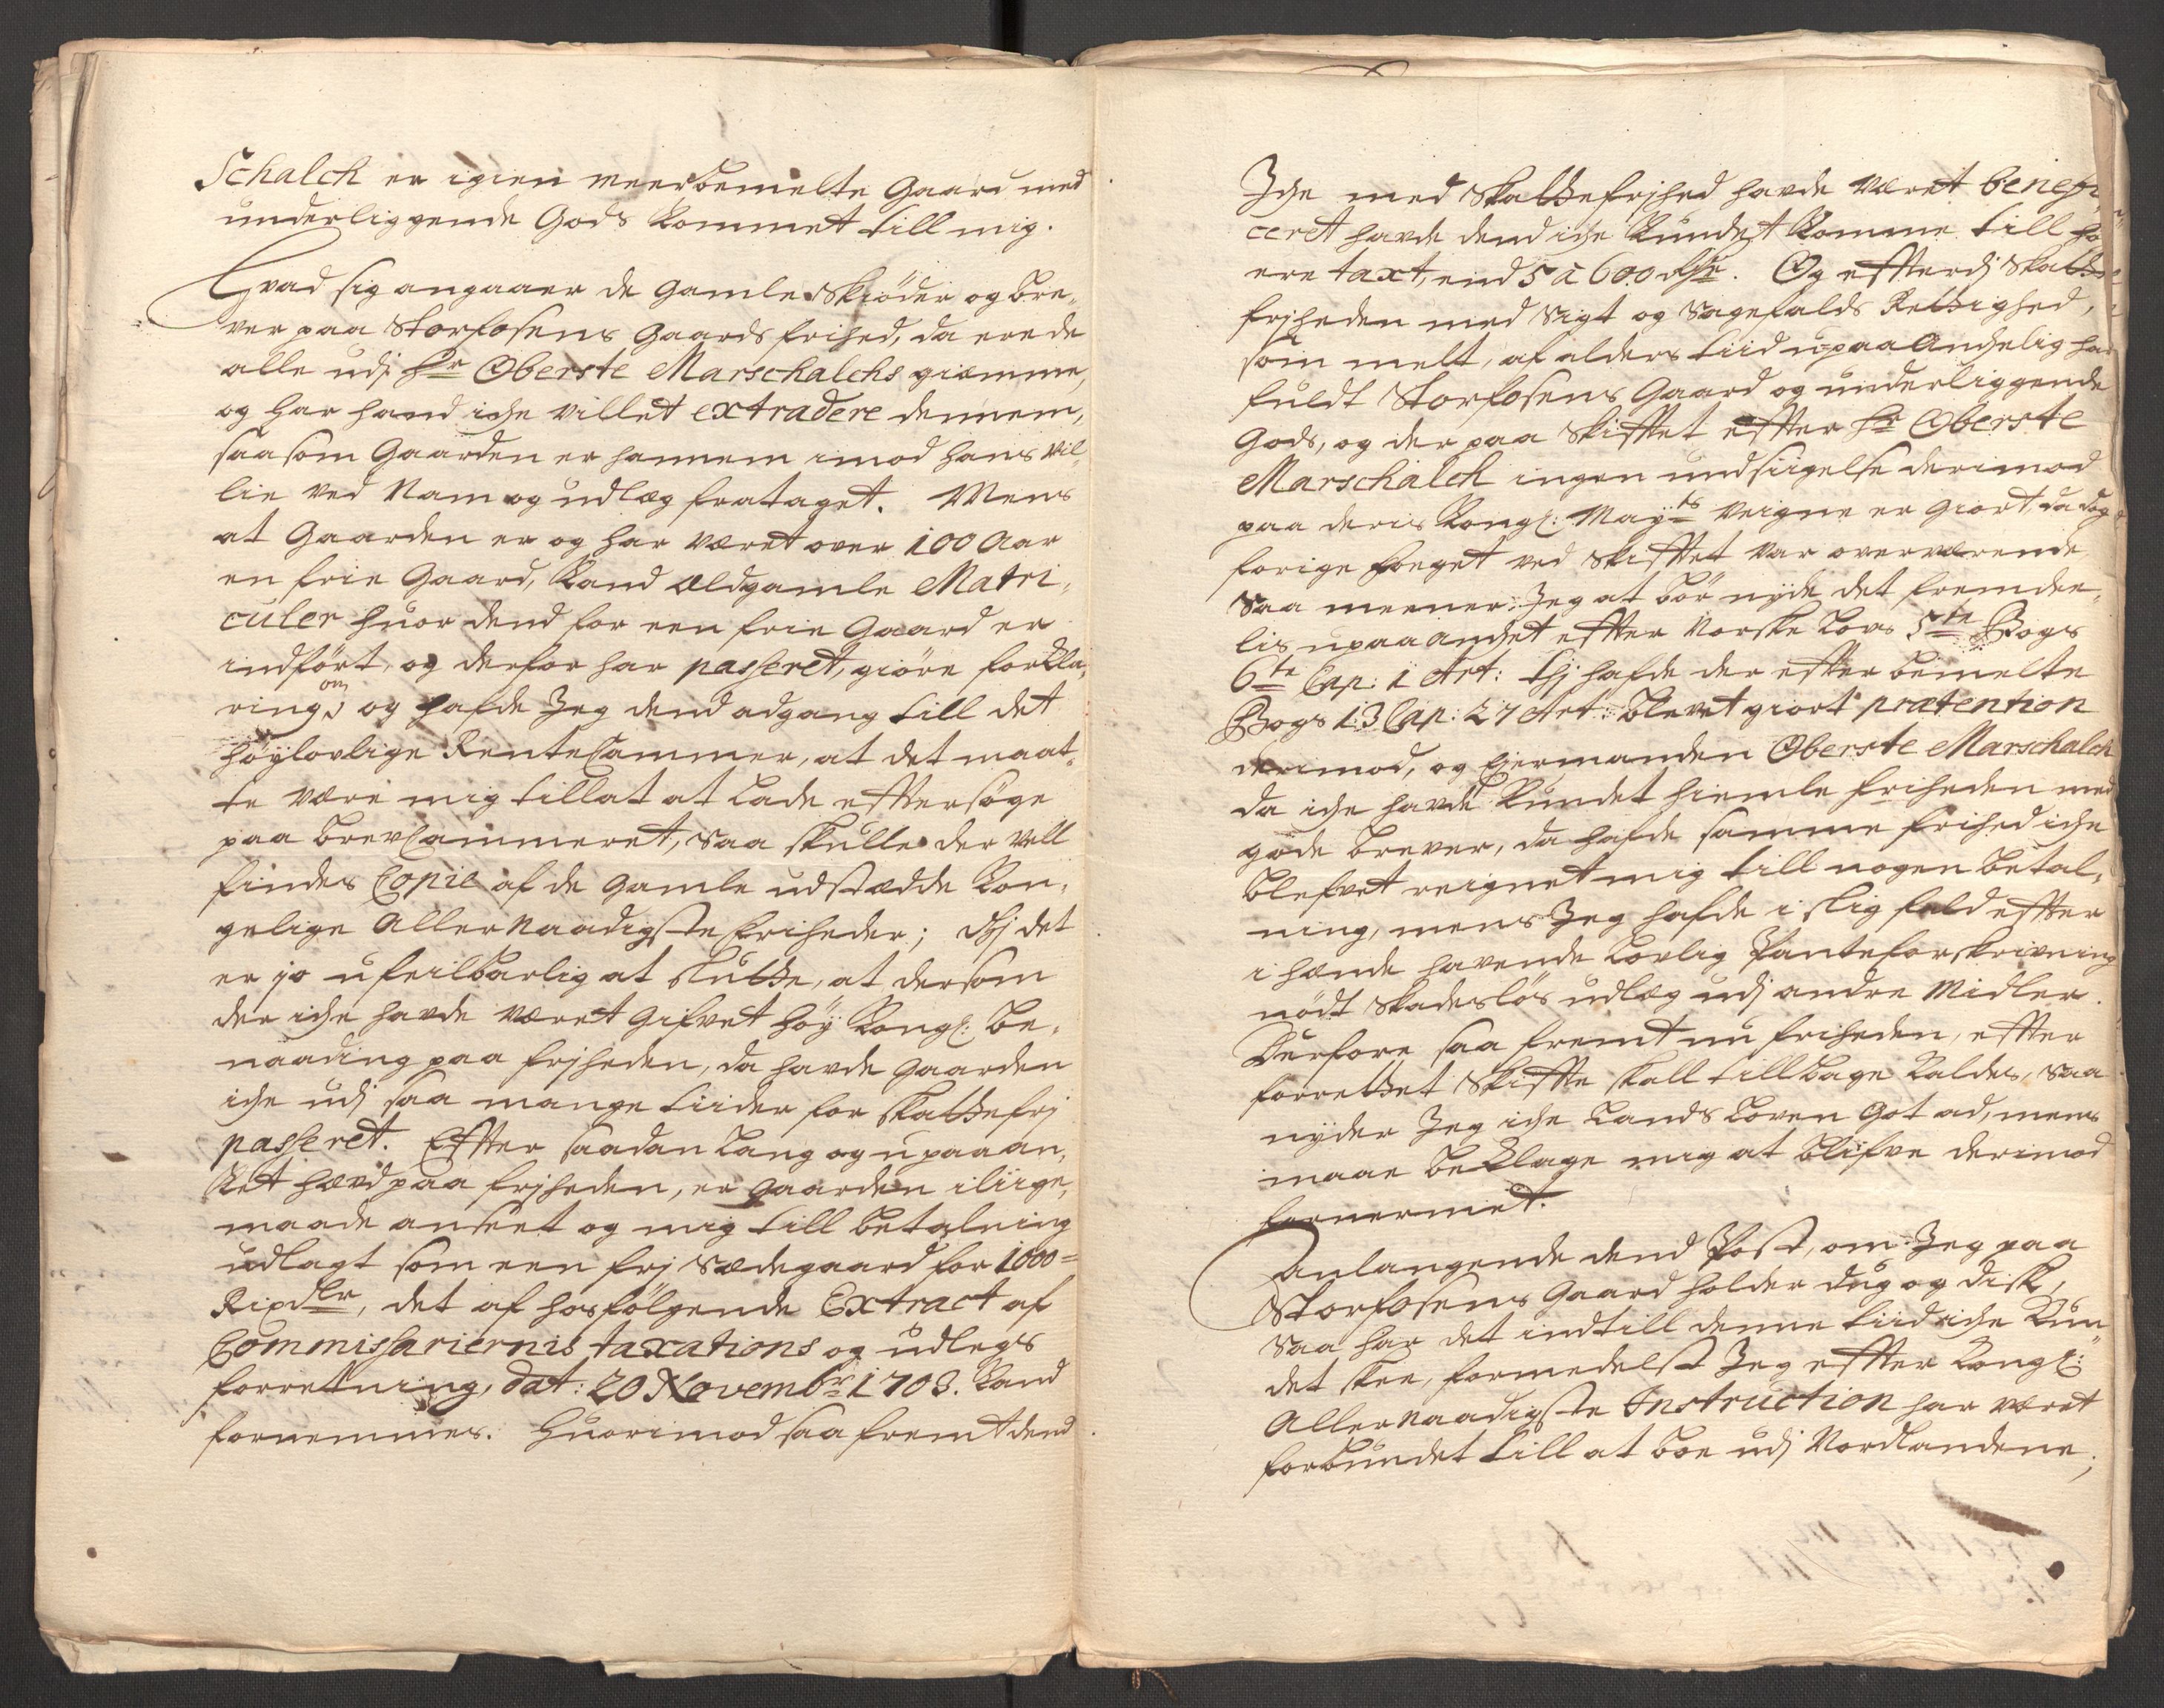 Schalch er igien meerbemelte Gaard med
underliggende Gods kommet till mig.
Hvad sig angaaer de gamle Skiöder og bre,
ver paa Storfosens Gaards frihed, da ere de
alle udj Hr Oberste Marschalchs giemme,
og har hand iche villet extradere dennem,
saasom Gaarden er hannem imod hans vil,
lie ved Nam og udlæg frataget. Mens
at Gaarden er og har været over 100 Aar
en frie Gaard, kand ældgamle Matri,
culer huor dend for een frie Gaard er
indført, og derfor har passeret, giöre forkla,
ring om, og hafde Jeg dend adgang till det
höylovlige RenteCammer, at det maat,
te være mig tillat at lade efftersöge
paa brevCammeret, saa skulle der vell
findes Copie af de gamle udstædde Kon,
gelige Allernaadigste friheder; thj det
er jo ufeilbarlig at slutte, at dersom
der iche havde været gifvet höy Kongl: be,
naading paa frjheden, da havde gaarden
iche udj saa mange tiider for skattefrj
passeret. Effter saadan lang og upaaan,
ket hævd paa frjheden, er gaarden iliige,
maade anseet og mig till betalning
udlagt som een frj sædegaard for 1000=
Rixdlr, det af hosfölgende Extract af
Commissariernis taxations og udlegs
forretning, dat: 20 Novembr 1703. kand
fornemmes. Huorimod saa fremt dend
Iche med Skattefrjhed havde været benefi,
ceret havde dend iche kundet komme till hö
ere taxt, end 5 à 600 dlr. Og effterdj Skatte
frjheden med Sigt og Sagefalds Rettighed,
som melt, af alders tiid upaaanchelig har
fuldt Storfosens Gaard og underliggende
Gods, og der paa Skifftet effter Hr Oberste
Marschalch ingen undsiigelse derimod
paa deris Kongl: Mayts veigne er giort, da dog
forige foeget ved Skifftet var overværende
Saa meener Jeg at bör nyde det fremdee,
lis upaaanchet effter Norske Lovs 5te Bogs
6te Cap: 1 Art: thj hafde der effter bemelte
Bogs 13 Cap: 27 Art: blevet giort prætention
derimod, og Ejermanden Oberste Marschalch
da iche havde kundet hiemle friheden med
gode brever, da hafde samme frihed iche
blefvet reignet mig till nogen betal,
ning, mens Jeg hafde i slig fald effter
i hænde havende lovlig Panteforskrivning
nödt skadeslös udlæg udj andre Midler.
Derfore saa fremt nu friheden, effter
forrettet Skiffte skall tillbage kaldes, saa
nyder Jeg iche Lands Loven got ad, mens
maae beklage mig at blifve derimod
fornermet.
Anlangende dend Post, om Jeg paa
Storfosens Gaard holder dug og disk,
Saa har det indtill denne tiid iche kun,
det skee, formedelst Jeg effter Kongl:
Allernaadigste Instruction har været
forbundet till at boe udj Nordlandene,